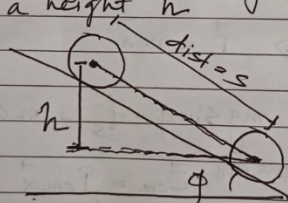 a height h
dist = s
h
φ